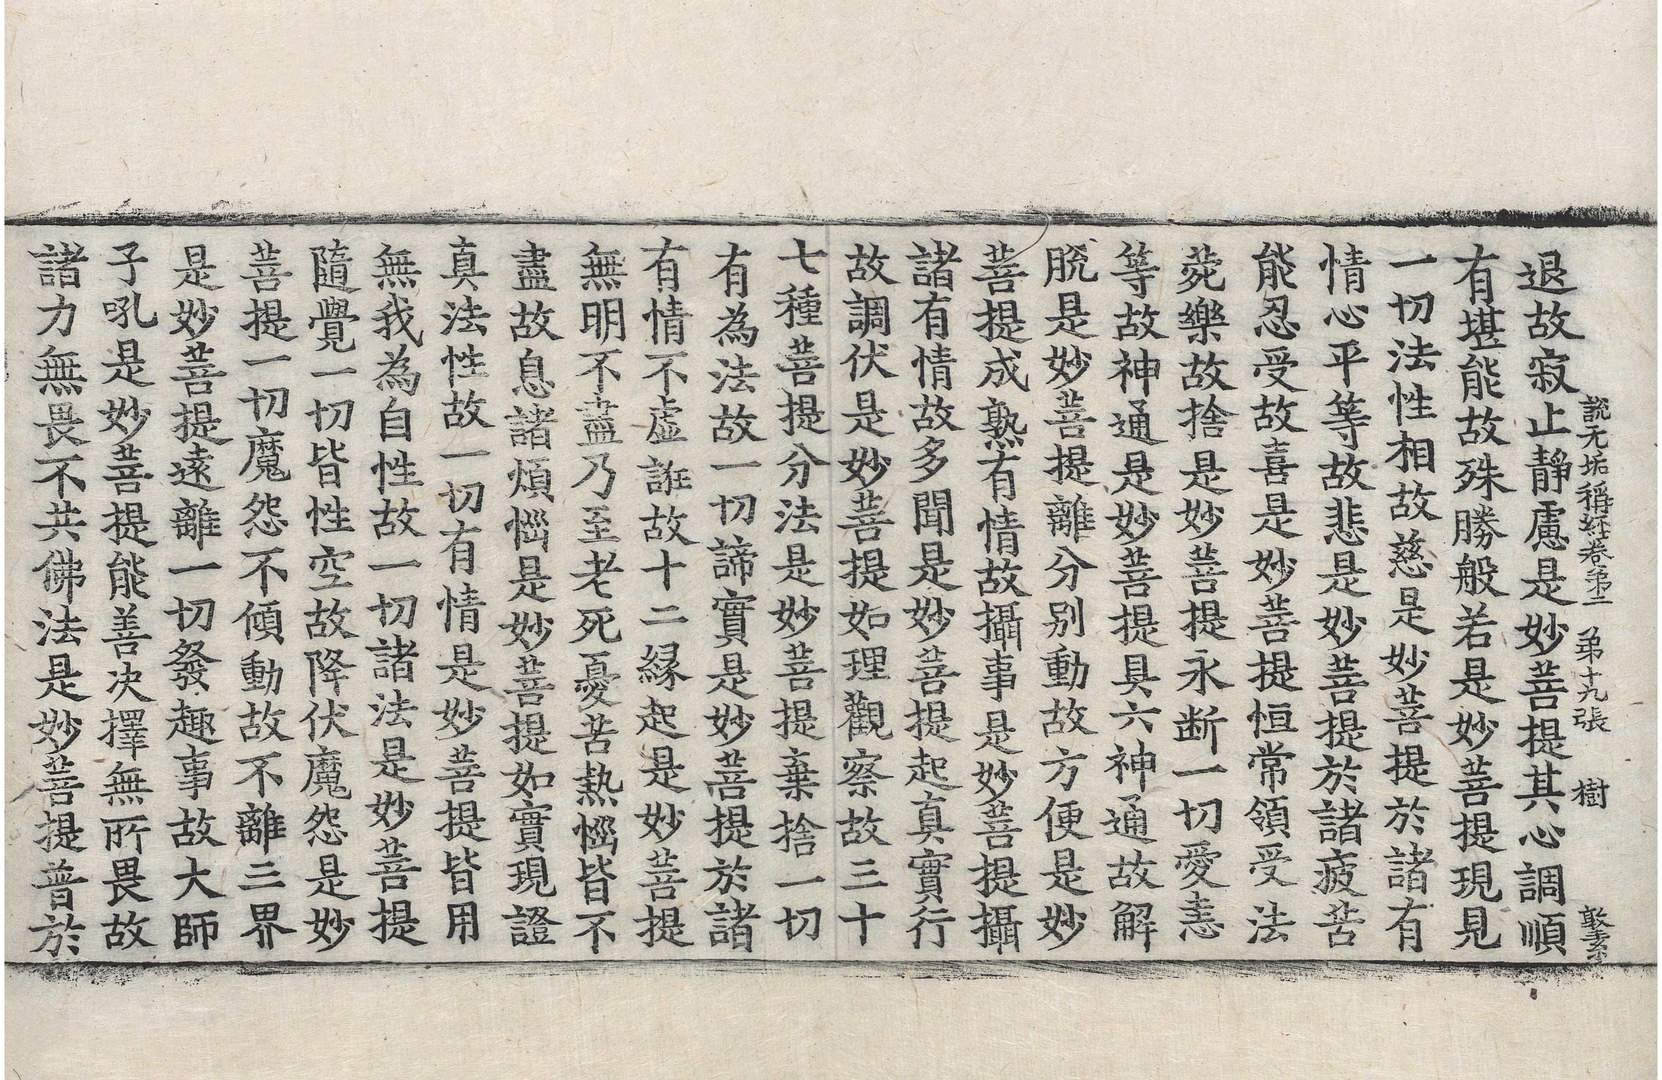 說无垢稱經卷第二　第十九張　樹　敦素
退故寂止靜慮是妙菩提其心調順
有堪能故殊勝般若是妙菩提現見
一切法性相故慈是妙菩提於諸有
情心平等故悲是妙菩提於諸疲苦
能忍受故喜是妙菩提恒常領受法
菀樂故捨是妙菩提永断一切愛恚
等故神通是妙菩提具六神通故解
脫是妙菩提離分別動故方便是妙
菩提成熟有情故攝事是妙菩提攝
諸有情故多聞是妙菩提起真實行
故調伏是妙菩提如理觀察故三十
七種菩提分法是妙菩提棄捨一切
有為法故一切諦實是妙菩提於諸
有情不虛誑故十二緣起是妙菩提
無明不盡乃至老死憂苦熱惱皆不
盡故息諸煩惱是妙菩提如實現證
真法性故一切有情是妙菩提皆用
無我為自性故一切諸法是妙菩提
隨覺一切皆性空故降伏魔怨是妙
菩提一切魔怨不傾動故不離三界
是妙菩提遠離一切發趣事故大師
子吼是妙菩提能善決擇無所畏故
諸力無畏不共佛法是妙菩提普於